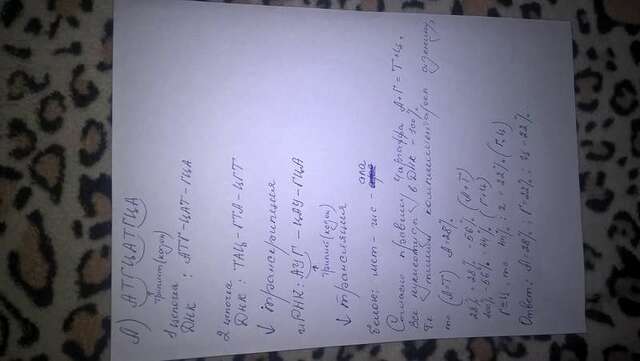 А) АТГЦАТГЦА
триплет(кодон)
1 цепочка
ДНК : АТГ-ЦАТ-ГЦА
2 цепочка
ДНК : ТАЦ-ГТА-ЦГТ
↓ транскрипция
иРНК: АУГ-ЦАУ-ГЦА
триплет(кодон)
↓ трансляция
белок: мет- гис - ала
Согласно правилу Чаргаффа А+Г = Т+Ц,
все нуклеотиды в ДНК - 100%
тимин комплементарен аденину,
то (А=Т) А=28%
28% + 28% = 56% (А+Т)
100% - 56% = 44% (Г+Ц)
Г=Ц, то 44% : 2 = 22% (Г, Ц)
Ответ: А=28% ; Г=22% ; Ц=22%